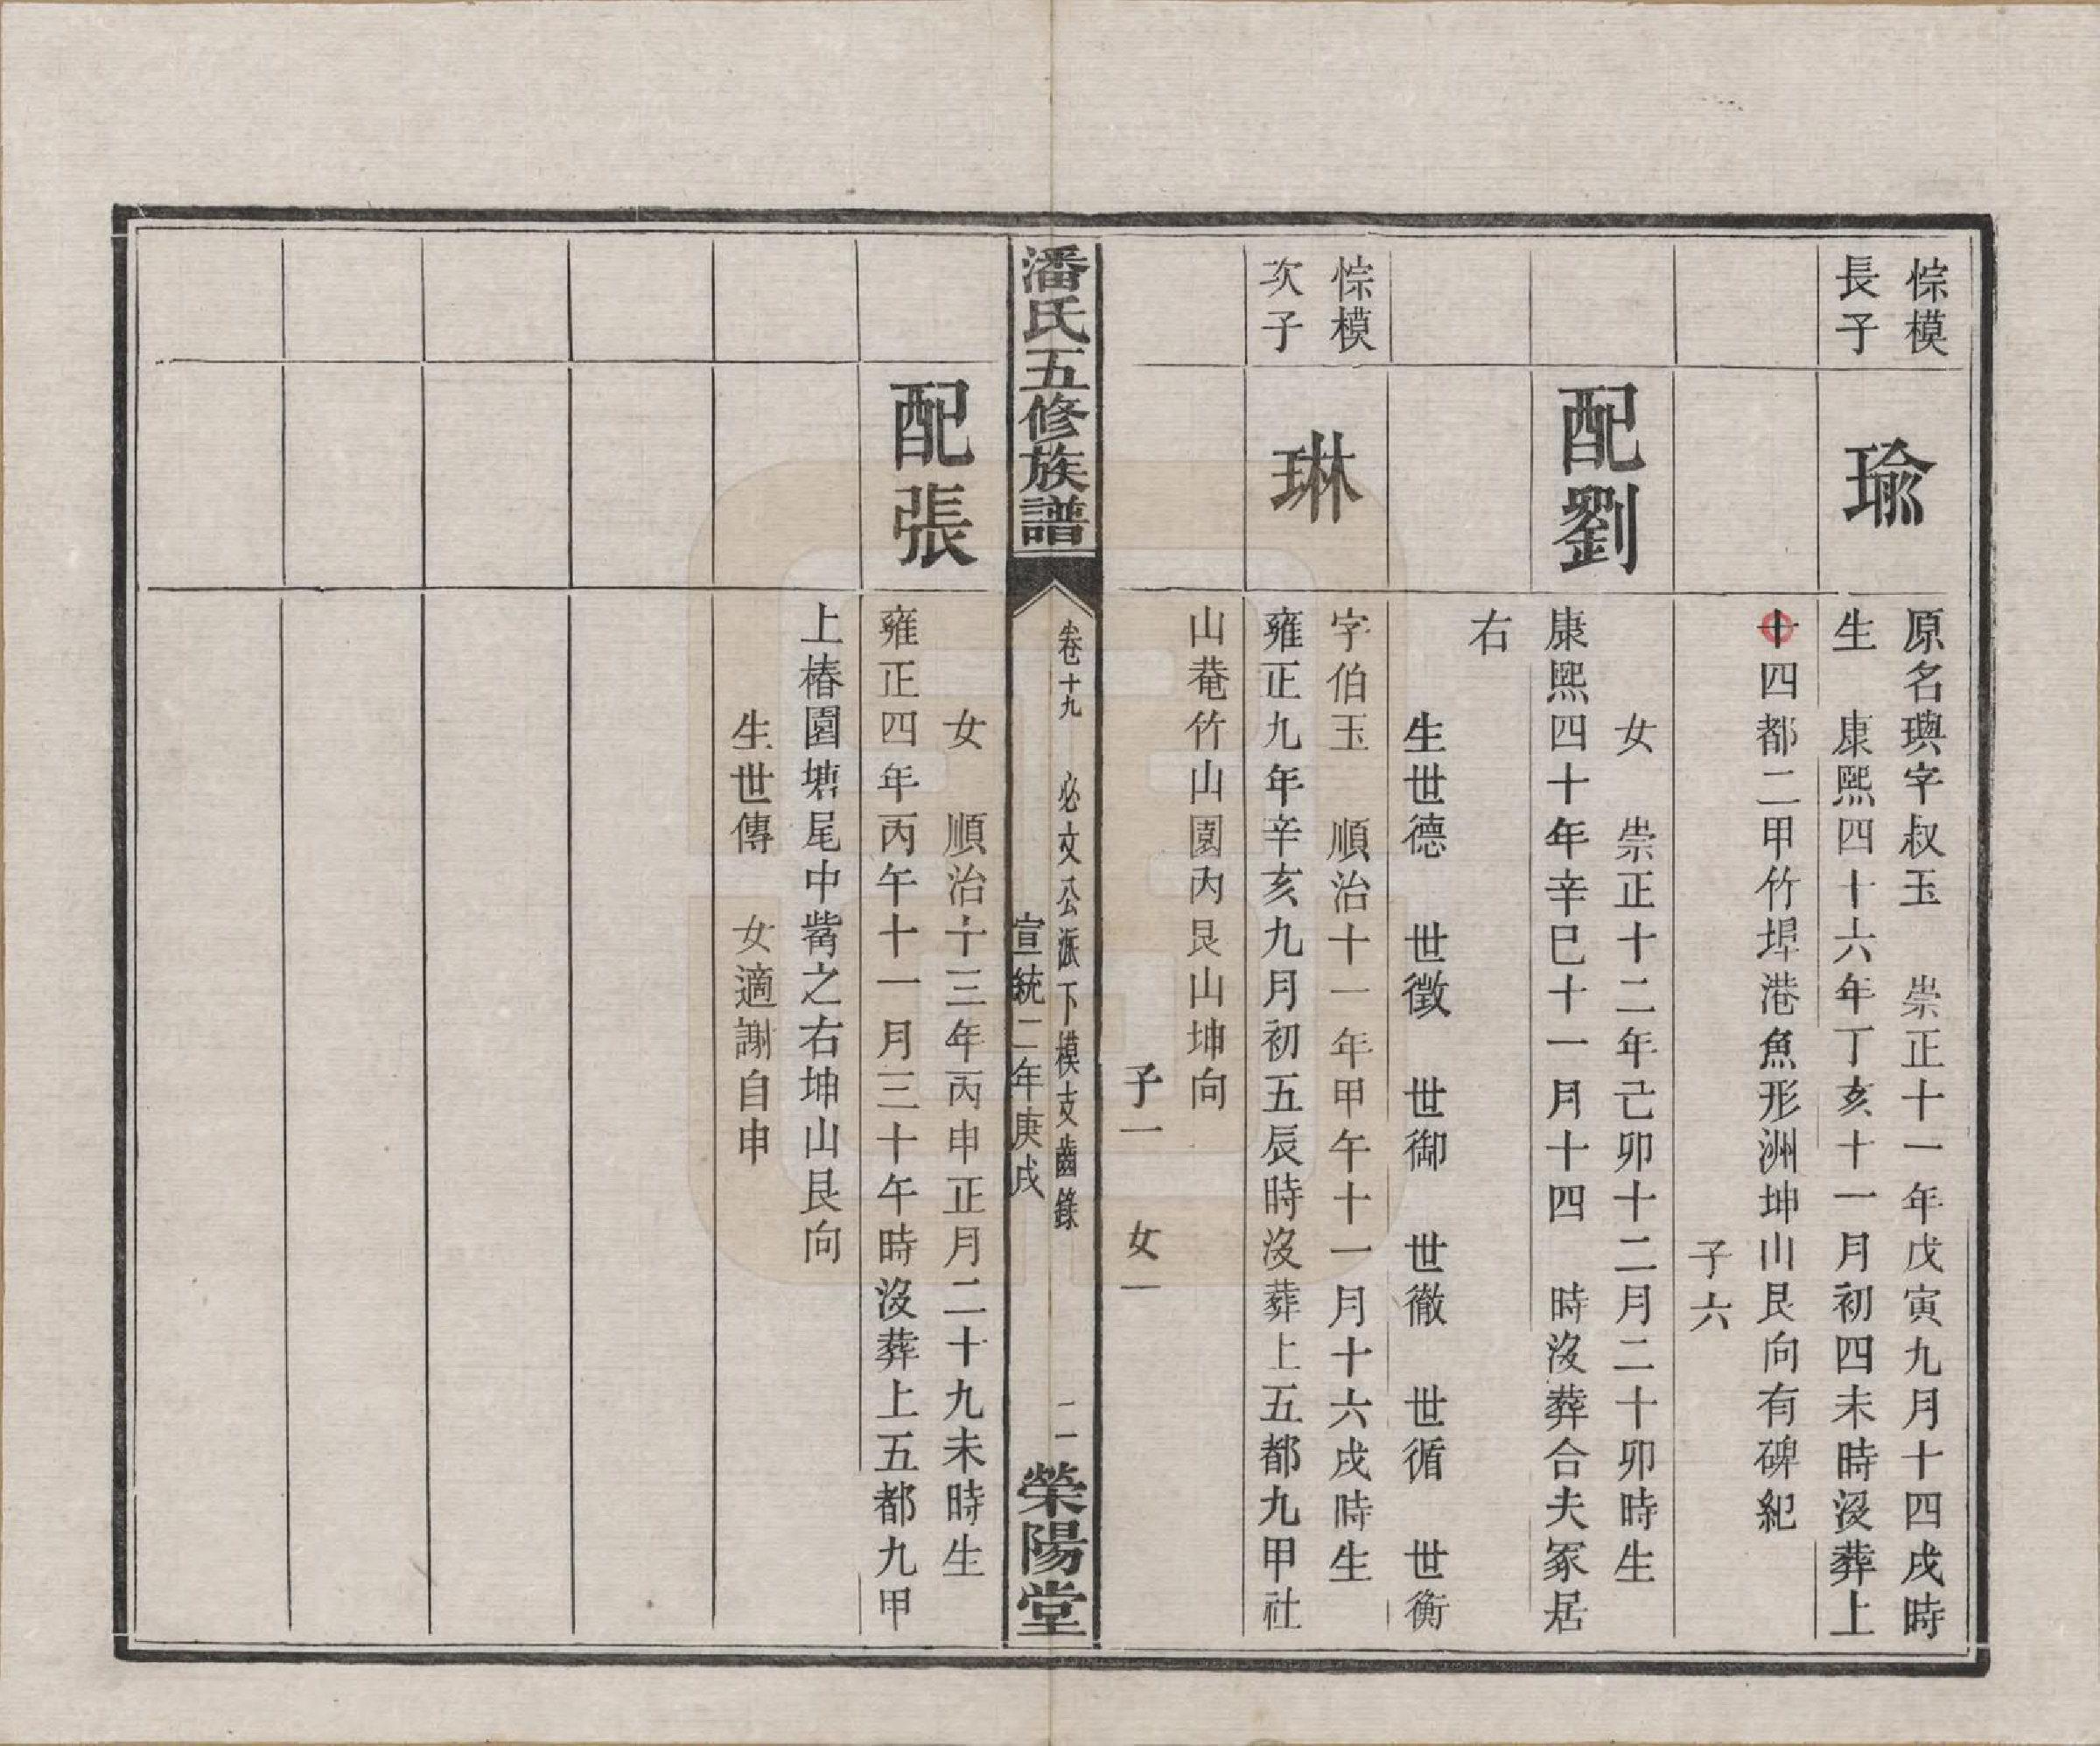 悰模
長子
瑜
原名璵字叔玉　崇正十一年戊寅九月十四戌時
生　康熙四十六年丁亥十一月初四未時沒葬上
十四都二甲竹埠港魚形洲坤山艮向有碑紀
子六
配劉
女　崇正十二年己卯十二月二十卯時生
康熙四十年辛巳十一月十四　時沒葬合夫冢居
右
生世德　世徵　世御　世徹　世循　世衡
悰模
次子
琳
字伯玉　順治十一年甲午十一月十六戌時生
雍正九年辛亥九月初五辰時沒葬上五都九甲社
山菴竹山園內艮山坤向
子一　女一
潘氏五修族譜
卷十九　必文公派下模支齒錄
宣統二年庚戌
二
榮陽堂
配張
女　順治十三年丙申正月二十九未時生
雍正四年丙午十一月三十午時沒葬上五都九甲
上椿園塘尾中嘴之右坤山艮向
生世傳　女適謝自申